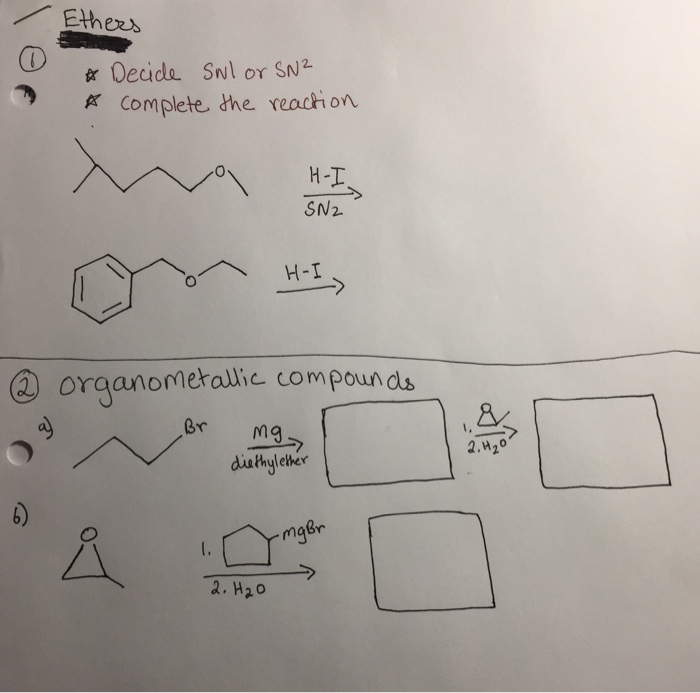 Ethers
①
☆ Decide SN1 or SN2
☆ complete the reaction
O
H-I
SN2
O
H-I
② organometallic compounds
a)
Br
Mg
diethylether
1. O
2. H2O
b)
O
1. MgBr
2. H2O